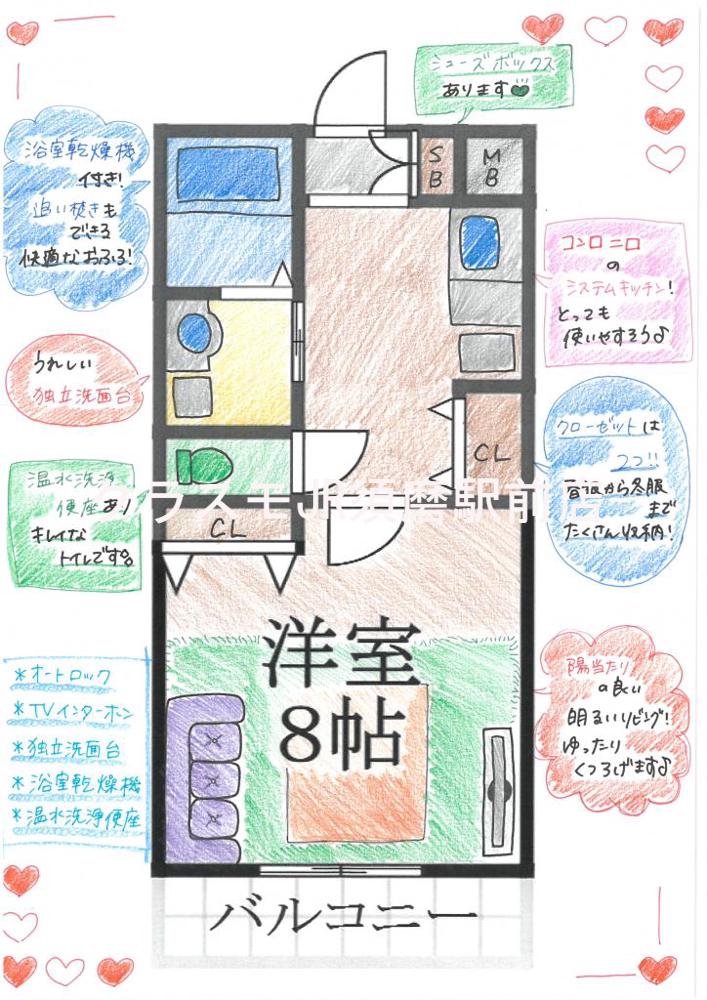 シューズボックス
あります
浴室乾燥機
付き!
追い焚きも
できる
快適なおふろ!
S
B
M
B
コンロ二口
の
システムキッチン!
とっても
使いやすそう♪
うれしい
独立洗面台
CL
クローゼットは
2つ!!
夏服から冬服
まで
たくさん収納!
温水洗浄
便座あり
キレイな
トイレです。
CL
プラスエJR須磨駅前店
洋室
8帖
陽当たり
の良い
明るいリビング!
ゆったり
くつろげます♪
*オートロック
*TVインターホン
*独立洗面台
*浴室乾燥機
*温水洗浄便座
バルコニー